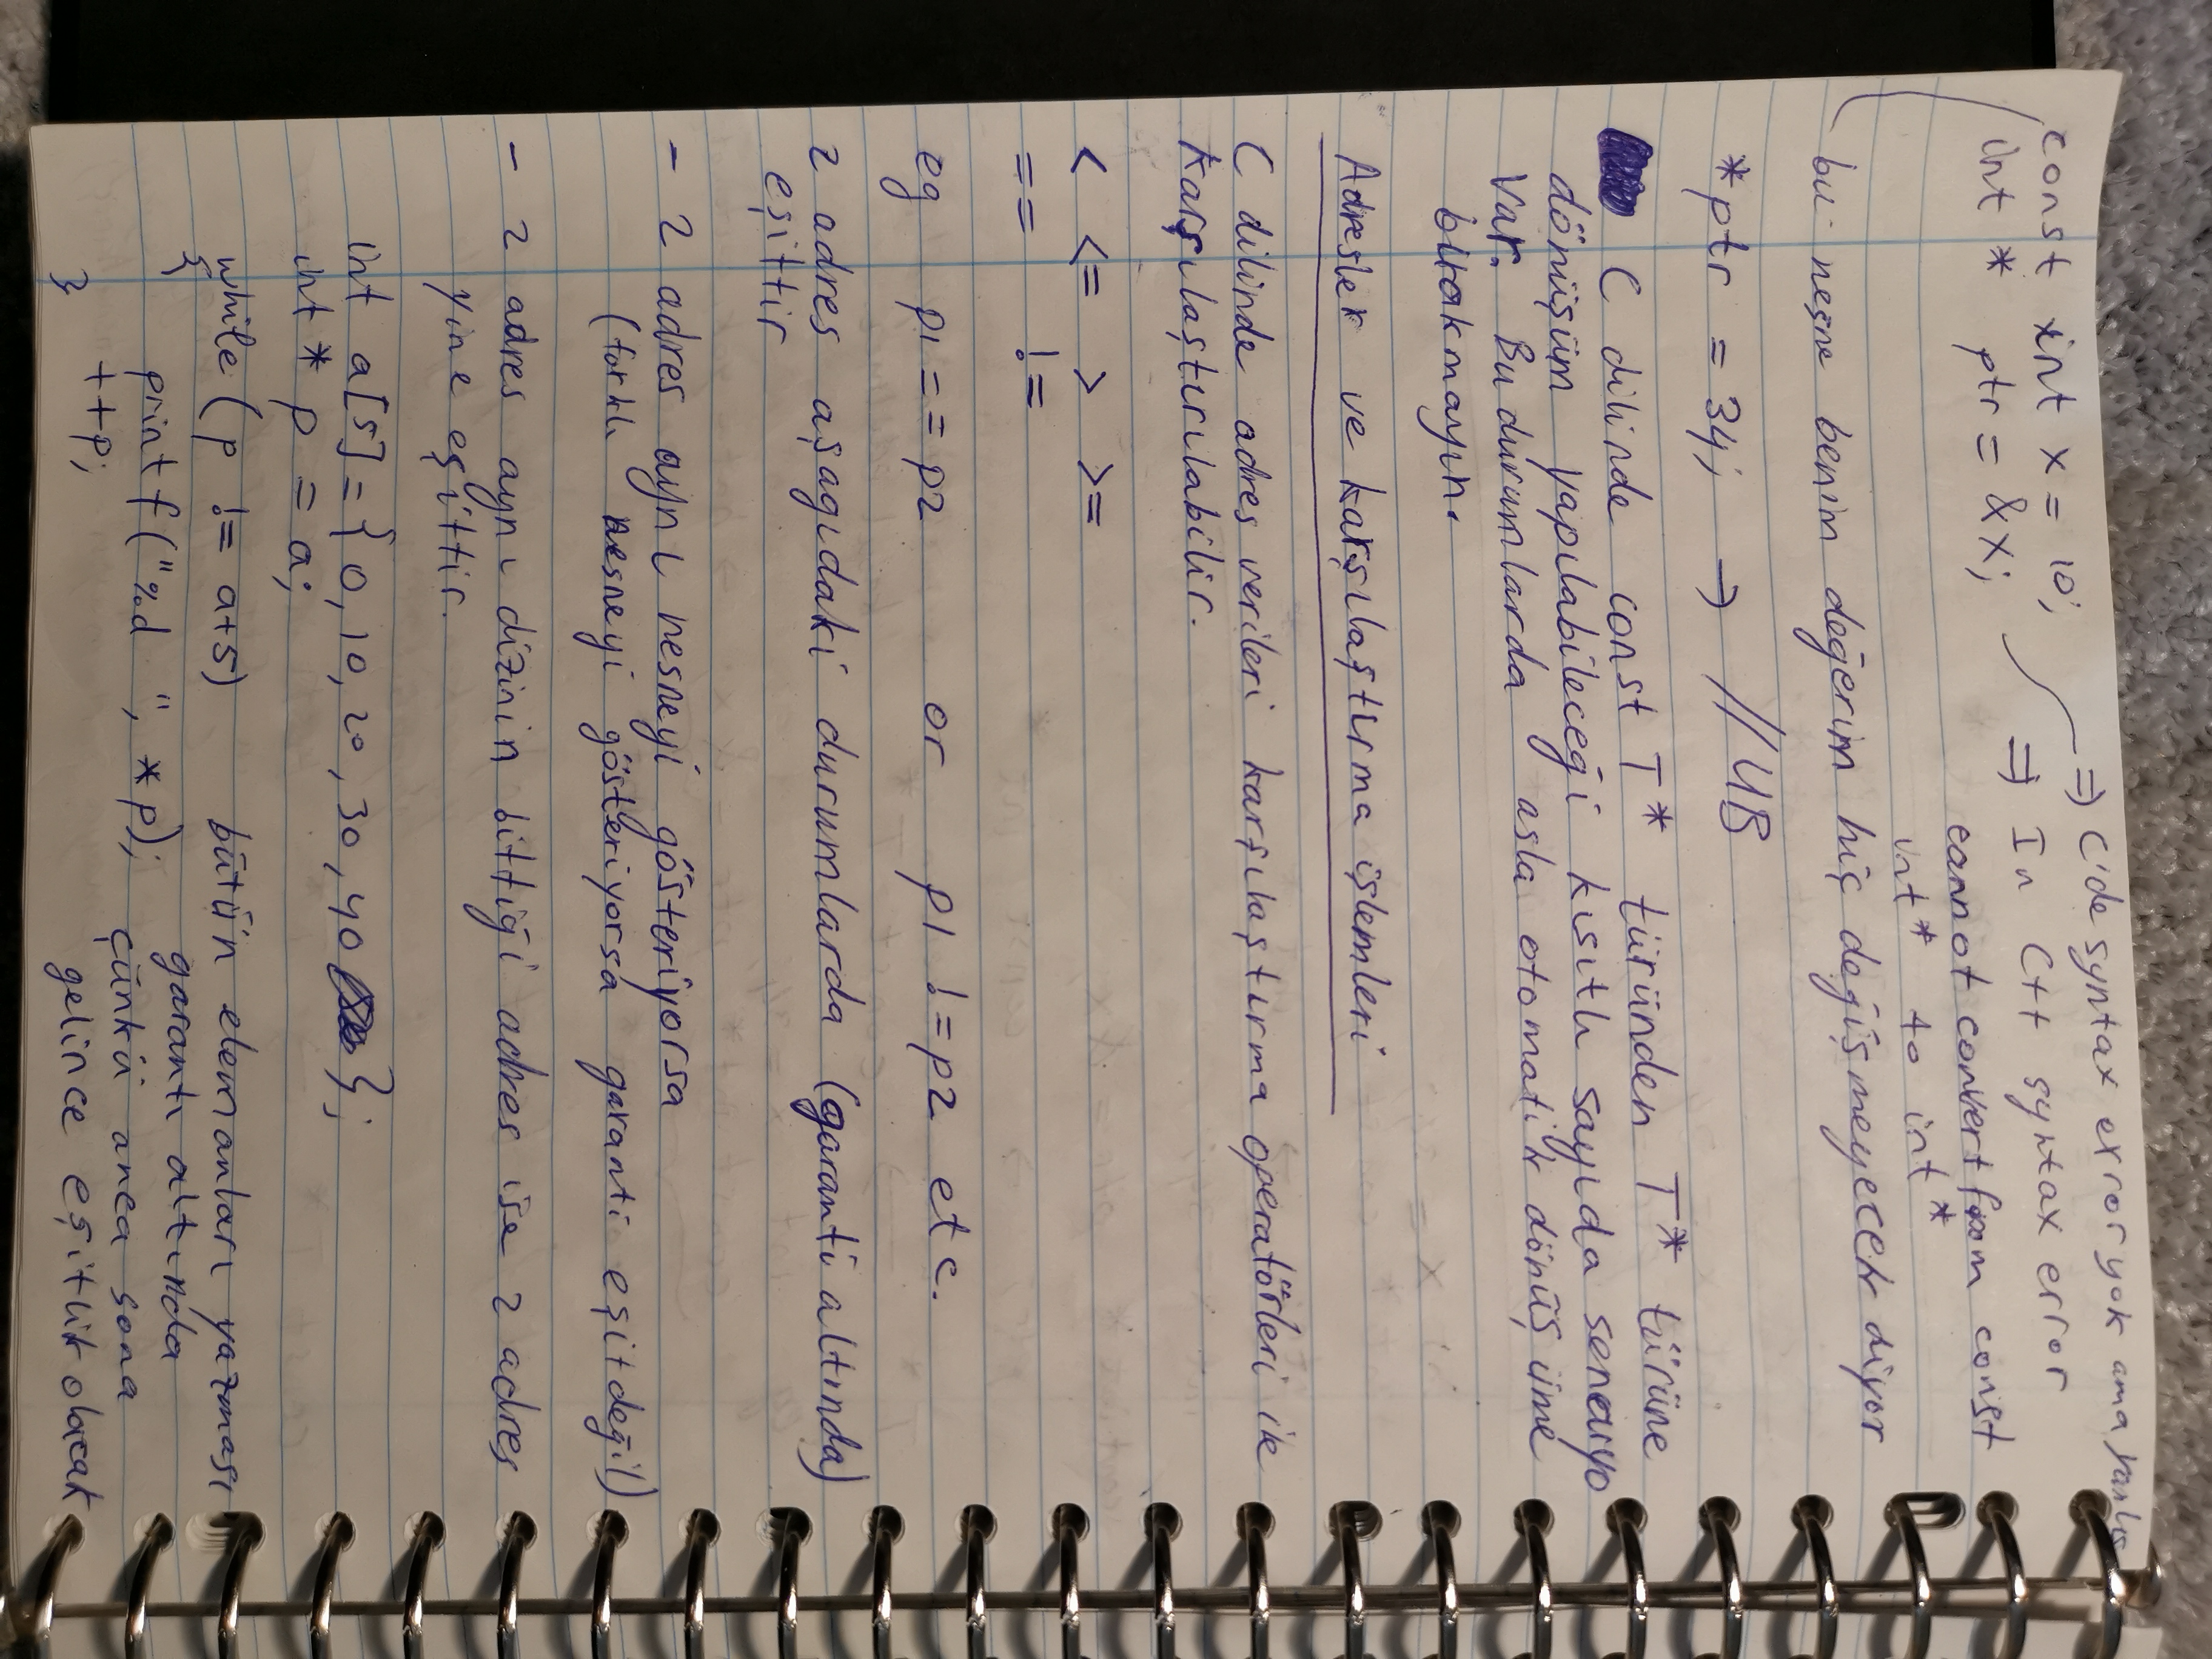 const int x = 10;
int * ptr = &x;
=> C'de syntax error yok ama yanlış
=> In C++ syntax error
cannot convert from const
int* to int*
bu nesne benim değerim hiç değişmeyecek diyor
*ptr = 34; → //UB
C dilinde const T* türünden T* türüne
dönüşüm yapılabileceği kısıtlı sayıda senaryo
var. Bu durumlarda asla otomatik dönüşüme
bırakmayın.
Adresler ve karşılaştırma işlemleri
C dilinde adres verileri karşılaştırma operatörleri ile
karşılaştırılabilir.
< <= > >=
== !=
eg p1 == p2 or p1 != p2 etc.
2 adres aşagıdaki durumlarda (garanti altında)
eşittir
- 2 adres aynı nesneyi gösteriyorsa
(farklı nesneyi gösteriyorsa garanti eşit değil)
- 2 adres aynı dizinin bittiği adres ise 2 adres
yine eşittir.
int a[5] = {0, 10, 20, 30, 40};
int * p = a;
while (p != a+5) bütün elemanları yazması
{ garantı altında
printf("%d ", *p); çünkü anca sona
++p; gelince eşitlik olacak
}